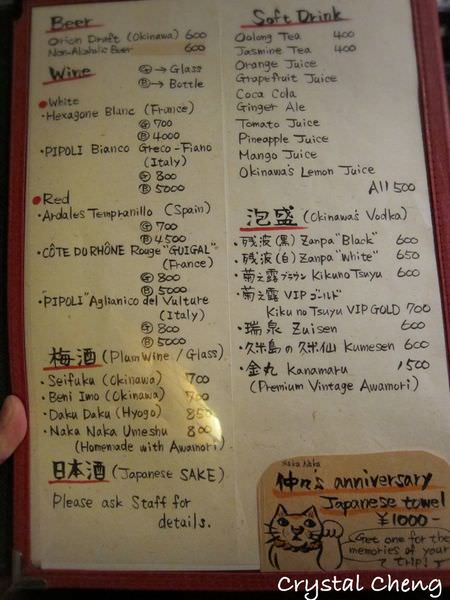 Beer
Orion Draft (Okinawa) 600
Non-Alcoholic Beer 600
Wine
Ⓖ→Glass
Ⓑ→Bottle
●White
・Hexagone Blanc (France)
Ⓖ 700
Ⓑ 4000
・PIPOLI Bianco Greco-Fiano
(Italy)
Ⓖ 800
Ⓑ 5000
●Red
・Ardales Tempranillo (Spain)
Ⓖ 700
Ⓑ 4500
・CÔTE DU RHÔNE Rouge "GUIGAL"
(France)
Ⓖ 800
Ⓑ 5000
・"PIPOLI" Aglianico del Vulture
(Italy)
Ⓖ 800
Ⓑ 5000
梅酒 (Plum Wine / Glass)
・Seifuku (Okinawa) 700
・Beni Imo (Okinawa) 700
・Daku Daku (Hyogo) 850
・Naka Naka Umeshu 800
(Homemade with Awamori)
日本酒 (Japanese SAKE)
Please ask Staff for
details.
Soft Drink
Oolong Tea 400
Jasmine Tea 400
Orange Juice
Grapefruit Juice
Coca Cola
Ginger Ale
Tomato Juice
Pineapple Juice
Mango Juice
Okinawa's Lemon Juice
All 500
泡盛 (Okinawa's Vodka)
・残波(黒) Zanpa "Black" 600
・残波(白) Zanpa "White" 650
・菊之露ブラウン Kikuno Tsuyu 600
・菊之露 VIP ゴールド
Kiku no Tsuyu VIP GOLD 700
・瑞泉 Zuisen 600
・久米島の久米仙 Kumesen 600
・金丸 Kanamaru 1500
(Premium Vintage Awamori)
Naka Naka
仲々's anniversary
Japanese towel
¥1000-
Get one for the
memories of your
trip!
Crystal Cheng